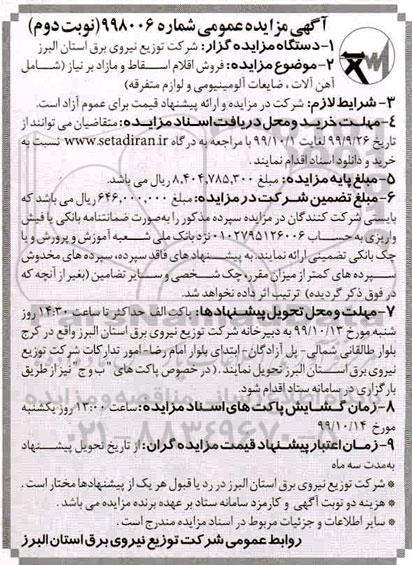 آگهی مزایده عمومی شماره ۹۹۸۰۰۶ (نوبت دوم)
۱-دستگاه مزایده گزار: شرکت توزیع نیروی برق استان البرز
۲-موضوع مزایده: فروش اقلام اسقاط و مازاد بر نیاز (شامل
آهن آلات، ضایعات آلومینیومی و لوازم متفرقه)
۳- شرایط لازم: شرکت در مزایده و ارائه پیشنهاد قیمت برای عموم آزاد است.
۴-مهلت خرید و محل دریافت اسناد مزایده: متقاضیان می توانند از
تاریخ ۹۹/۹/۲۶ لغایت ۹۹/۱۰/۱ با مراجعه به درگاه www.setadiran.ir نسبت به
خرید و دانلود اسناد اقدام نمایند.
۵-مبلغ پایه مزایده: مبلغ ۸,۴۰۴,۷۸۵,۳۰۰ ریال می باشد.
۶-مبلغ تضمین شرکت در مزایده: مبلغ ۶۴۶,۰۰۰,۰۰۰ ریال می باشد که
بایستی شرکت کنندگان در مزایده سپرده مذکور را به صورت ضمانتنامه بانکی یا فیش
واریزی به حساب ۰۱۰۲۷۹۵۱۲۶۰۰۶ نزد بانک ملی شعبه آموزش و پرورش و یا
چک بانکی تضمینی ارائه نمایند. به پیشنهاد های فاقد سپرده، سپرده های مخدوش
سپرده های کمتر از میزان مقرر، چک شخصی و سایر تضامین (بغیر از آنچه که
در فوق ذکر گردیده) ترتیب اثر داده نخواهد شد.
۷-مهلت و محل تحویل پیشنهادها: پاکت الف حداکثر تا ساعت ۱۴:۳۰ روز
شنبه مورخ ۹۹/۱۰/۱۳ به دبیرخانه شرکت توزیع نیروی برق استان البرز واقع در کرج
بلوار طالقانی شمالی- پل آزادگان- ابتدای بلوار امام رضا-امور تدارکات شرکت توزیع
نیروی برق استان البرز تحویل نمایند. (در خصوص پاکت های "ب و ج" نیز از طریق
بارگزاری در سامانه ستاد اقدام شود.
۸-زمان گشایش پاکت های اسناد مزایده: ساعت ۱۳:۰۰ روز یکشنبه
مورخ ۹۹/۱۰/۱۴
۹-زمان اعتبار پیشنهاد قیمت مزایده گران: از تاریخ تحویل پیشنهاد
به مدت سه ماه
* شرکت توزیع نیروی برق استان البرز در رد یا قبول هر یک از پیشنهادها مختار است.
* هزینه دو نوبت آگهی و کارمزد سامانه ستاد بر عهده برنده مزایده می باشد.
* سایر اطلاعات و جزئیات مربوط در اسناد مزایده مندرج است.
روابط عمومی شرکت توزیع نیروی برق استان البرز